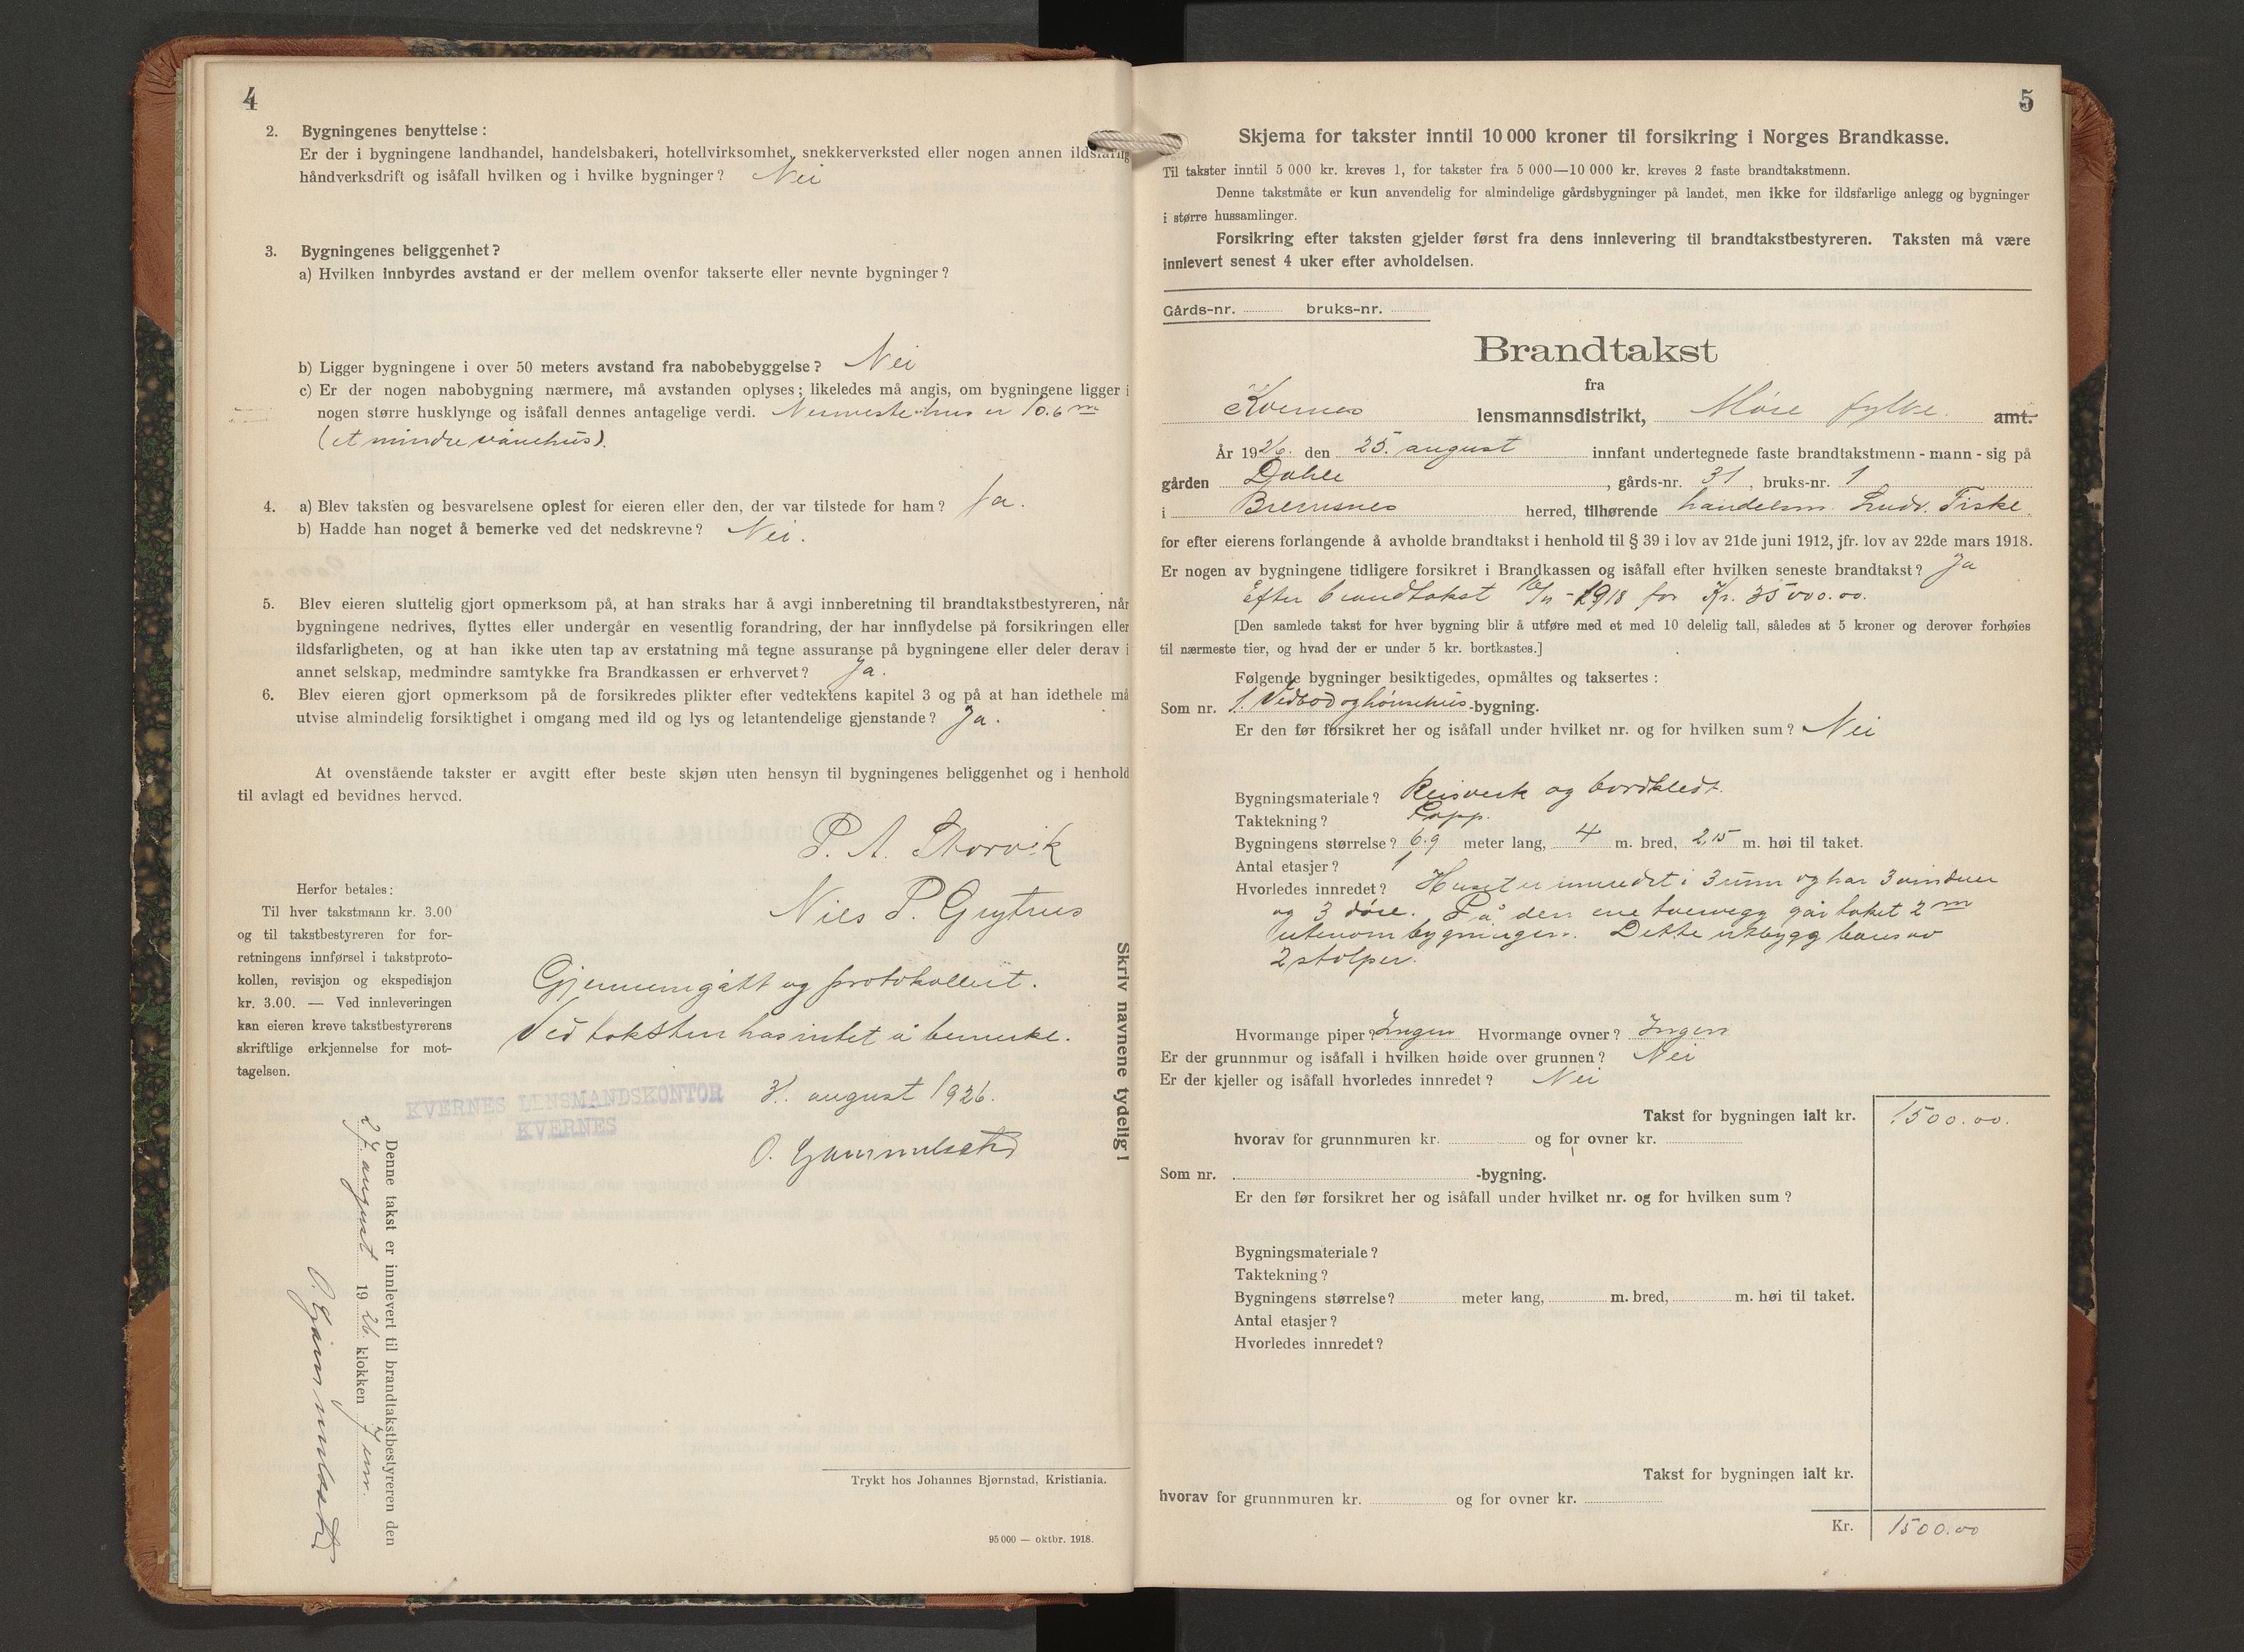 4
2. Bygningenes benyttelse:
Er der i bygningene landhandel, handelsbakeri, hotellvirksomhet, snekkerverksted eller nogen annen ildsfarlig
håndverksdrift og isåfall hvilken og i hvilke bygninger? Nei
3. Bygningenes beliggenhet?
a) Hvilken innbyrdes avstand er der mellem ovenfor takserte eller nevnte bygninger?
b) Ligger bygningene i over 50 meters avstand fra nabobebyggelse? Nei
c) Er der nogen nabobygning nærmere, må avstanden oplyses; likeledes må angis, om bygningene ligger i
nogen større husklynge og isåfall dennes antagelige verdi. Nermeste hus er 10.6 m
(et mindre vånehus).
4. a) Blev taksten og besvarelsene oplest for eieren eller den, der var tilstede for ham? Ja.
b) Hadde han noget å bemerke ved det nedskrevne? Nei.
5. Blev eieren sluttelig gjort opmerksom på, at han straks har å avgi innberetning til brandtakstbestyreren, når
bygningene nedrives, flyttes eller undergår en vesentlig forandring, der har innflydelse på forsikringen eller
ildsfarligheten, og at han ikke uten tap av erstatning må tegne assuranse på bygningene eller deler derav i
annet selskap, medmindre samtykke fra Brandkassen er erhvervet? Ja.
6. Blev eieren gjort opmerksom på de forsikredes plikter efter vedtektens kapitel 3 og på at han idethele må
utvise almindelig forsiktighet i omgang med ild og lys og letantendelige gjenstande? Ja.
At ovenstående takster er avgitt efter beste skjøn uten hensyn til bygningenes beliggenhet og i henhold
til avlagt ed bevidnes herved.
P. A. Storvik
Nils P. Grytnes
Herfor betales:
Til hver takstmann kr. 3.00
og til takstbestyreren for for-
retningens innførsel i takstproto-
kollen, revisjon og ekspedisjon
kr. 3.00. — Ved innleveringen
kan eieren kreve takstbestyrerens
skriftlige erkjennelse for mot-
tagelsen.
Gjennemgått og protokollert.
Ved taksten has intet å bemerke.
31. august 1926.
KVERNES LENSMANDSKONTOR
KVERNES
O. Gammelsæter
Skriv navnene tydelig!
Denne takst er innlevert til brandtakstbestyreren den
27. august 1926. klokken 7 em.
O. Gammelsæter
Trykt hos Johannes Bjørnstad, Kristiania.
95 000 — oktbr. 1918.
5
Skjema for takster inntil 10 000 kroner til forsikring i Norges Brandkasse.
Til takster inntil 5 000 kr. kreves 1, for takster fra 5 000—10 000 kr. kreves 2 faste brandtakstmenn.
Denne takstmåte er kun anvendelig for almindelige gårdsbygninger på landet, men ikke for ildsfarlige anlegg og bygninger
i større hussamlinger.
Forsikring efter taksten gjelder først fra dens innlevering til brandtakstbestyreren. Taksten må være
innlevert senest 4 uker efter avholdelsen.
Gårds-nr. bruks-nr.
Brandtakst
fra
Kvernes lensmannsdistrikt, Møre fylke. amt.
År 1926. den 25. august innfant undertegnede faste brandtakstmenn - mann - sig på
gården Dahle, gårds-nr. 31, bruks-nr. 1
i Bremsnes herred, tilhørende handelsm. Ludv. Fiske.
for efter eierens forlangende å avholde brandtakst i henhold til § 39 i lov av 21de juni 1912, jfr. lov av 22de mars 1918.
Er nogen av bygningene tidligere forsikret i Brandkassen og isåfall efter hvilken seneste brandtakst? Ja
Efter brandtakst 10/11 - 1918 for Kr. 35000.00.
[Den samlede takst for hver bygning blir å utføre med et med 10 delelig tall, således at 5 kroner og derover forhøies
til nærmeste tier, og hvad der er under 5 kr. bortkastes.]
Følgende bygninger besiktigedes, opmåltes og taksertes:
Som nr. 1. Vedbod og hønsehus-bygning.
Er den før forsikret her og isåfall under hvilket nr. og for hvilken sum? Nei
Bygningsmateriale? Reisverk og bordkledt.
Taktekning? Papp.
Bygningens størrelse? 6.9 meter lang, 4 m. bred, 2,15 m. høi til taket.
Antal etasjer? 1
Hvorledes innredet? Huset er innredet i 3 rum og har 3 vinduer
og 3 døre. På den ene tvervegg går taket 2 m
utenom bygningen. Dette utbygg bæres av
2 stolper.
Hvormange piper? Ingen Hvormange ovner? Ingen
Er der grunnmur og isåfall i hvilken høide over grunnen? Nei
Er der kjeller og isåfall hvorledes innredet? Nei
Takst for bygningen ialt kr. 1500.00.
hvorav for grunnmuren kr. og for ovner kr.
Som nr. -bygning.
Er den før forsikret her og isåfall under hvilket nr. og for hvilken sum?
Bygningsmateriale?
Taktekning?
Bygningens størrelse? meter lang, m. bred, m. høi til taket.
Antal etasjer?
Hvorledes innredet?
Takst for bygningen ialt kr.
hvorav for grunnmuren kr. og for ovner kr.
Kr. 1500.00